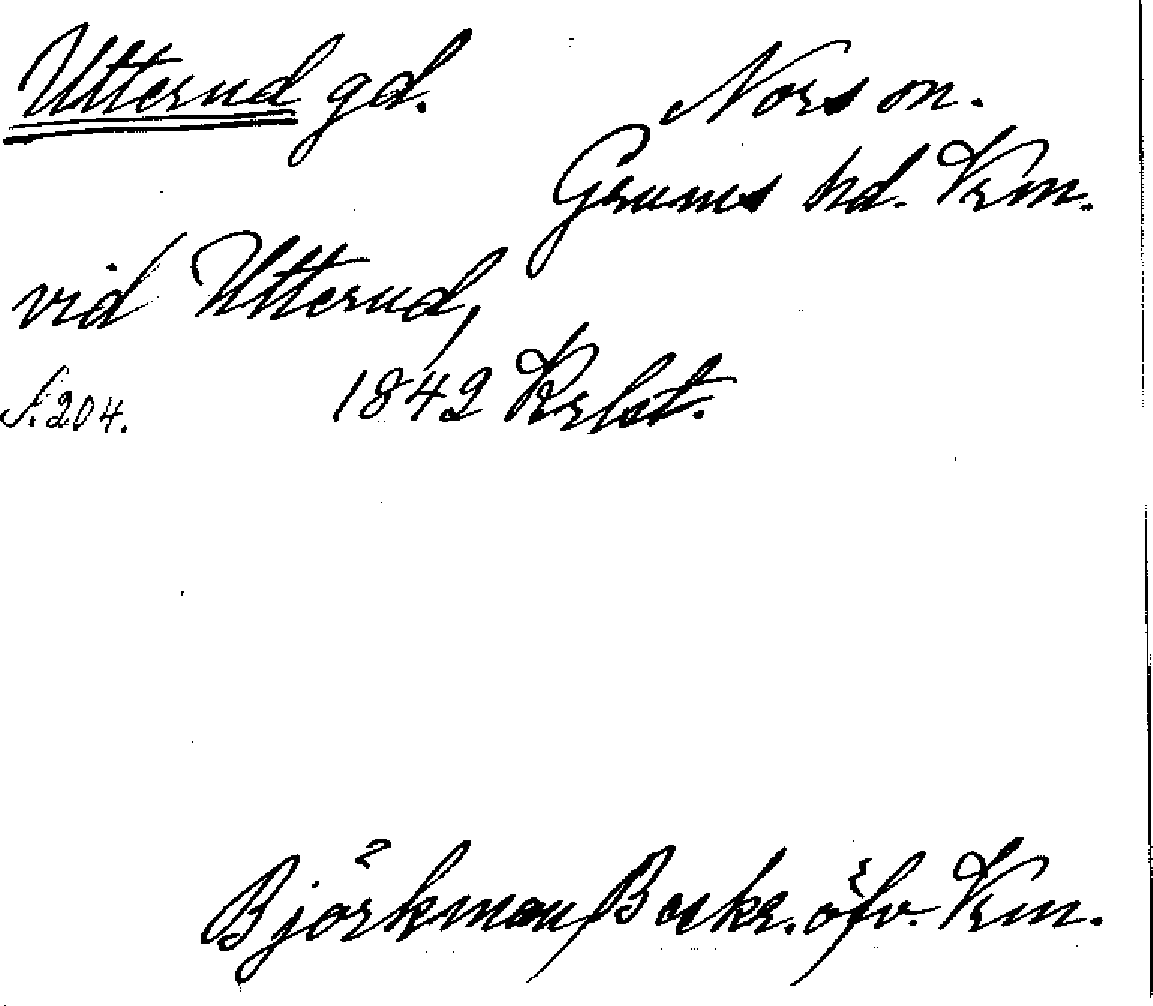 Utterud gd. Nors sn.
Grums hd. Vrm.
vid Utterud,
S. 204. 1842 Krlst.
Björkman, Beskr. öfv. Vrm.